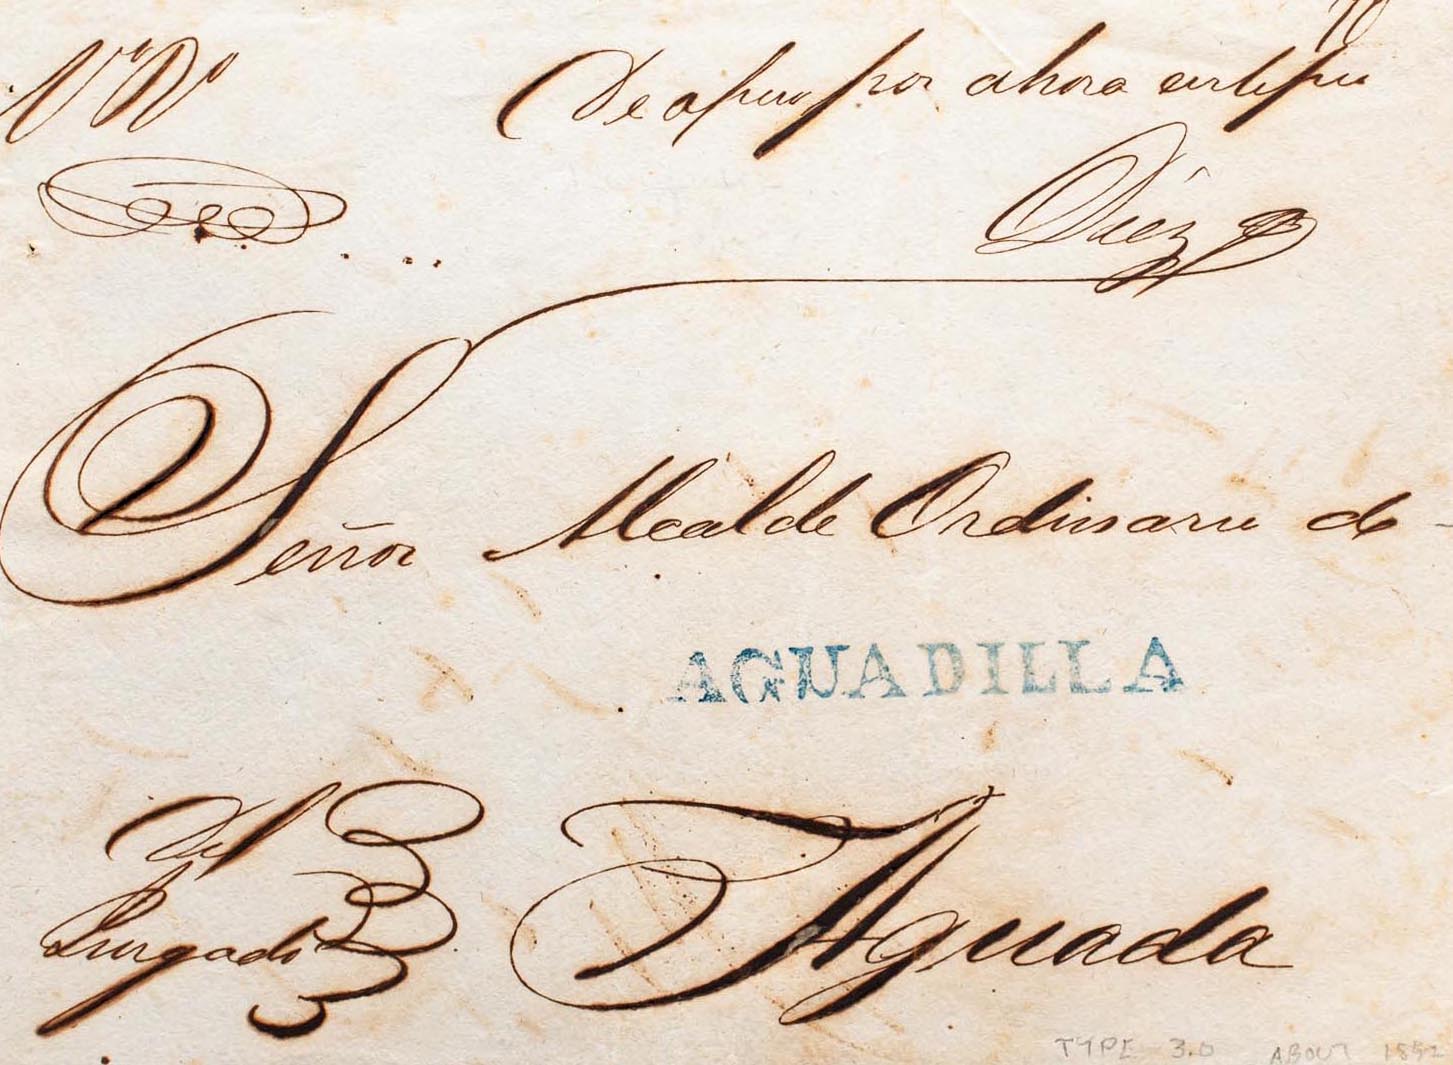 De apuro por ahora
Diez
Señor Alcalde Ordinario de
AGUADILLA
Del
Juzgado
Aguada
TYPE 3.0 ABOUT 1852